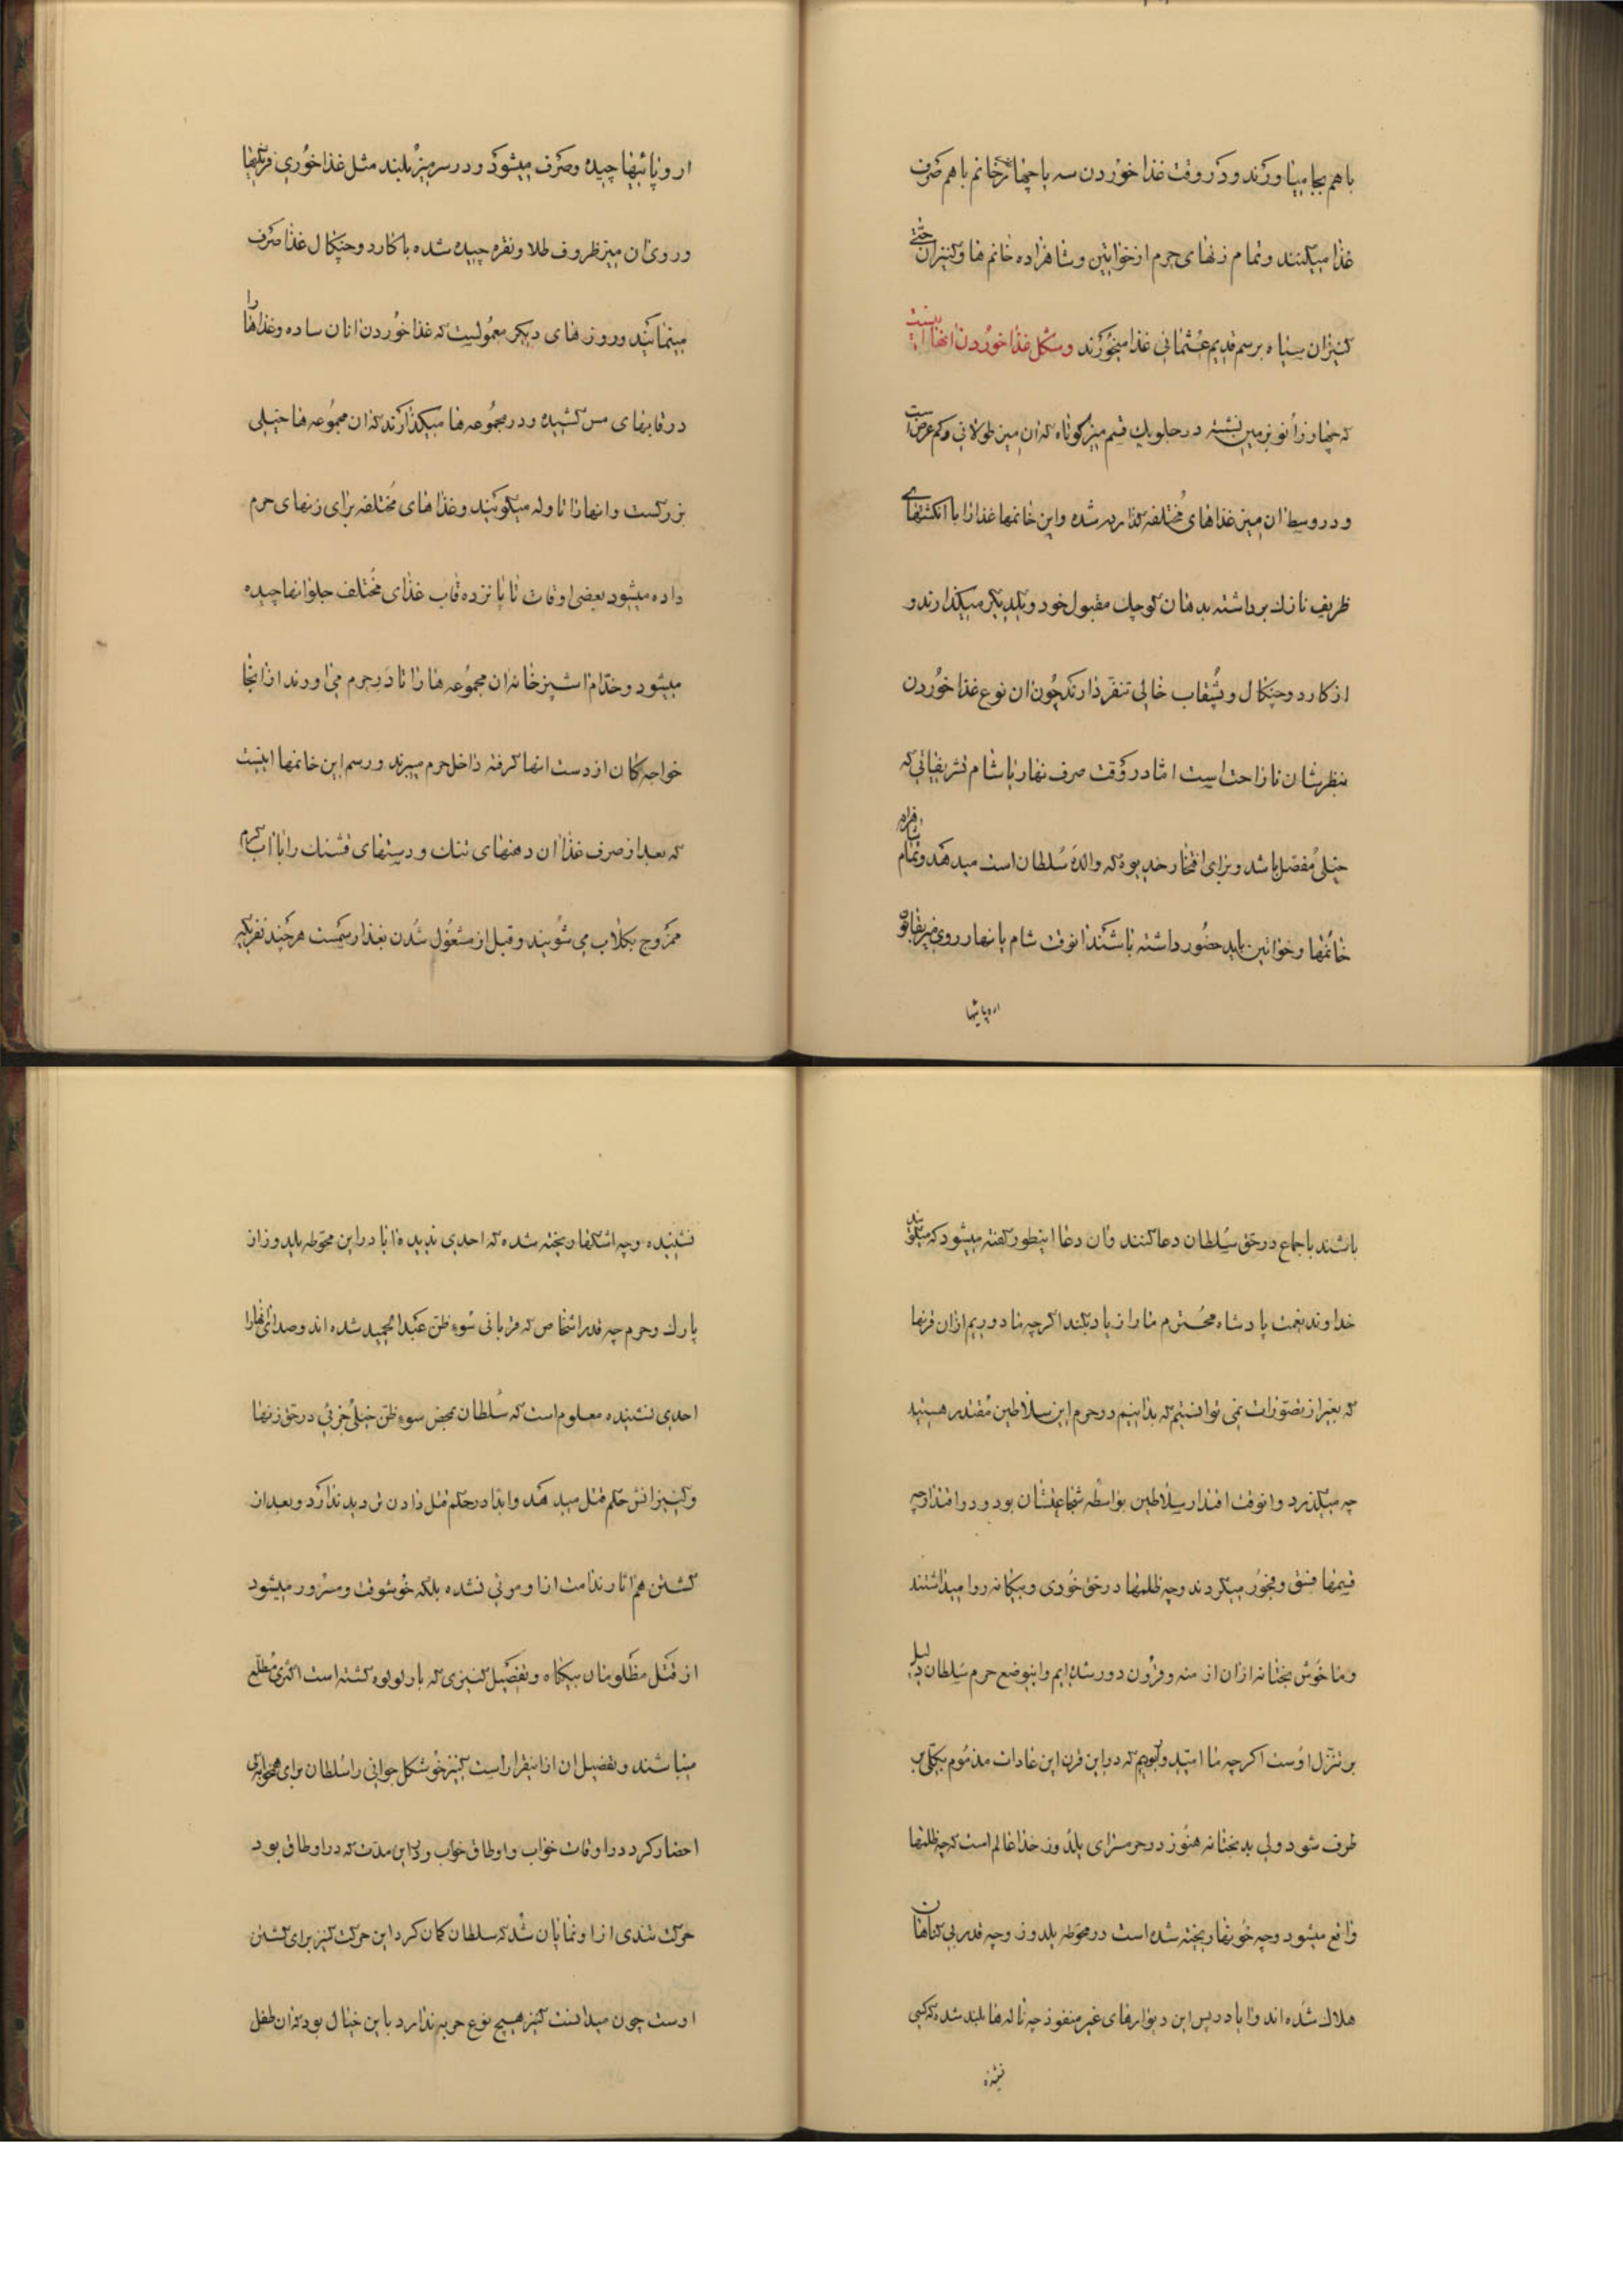 با هم بجا میاورند و در وقت غذا خوردن سه یا چهار نفر خانم با هم صرف
غذا میکنند و تمام زنهای حرم از خواتین و شاهزاده خانم ها و کنیزان حتی
کنیزان سیاه برسم قدیم عثمانی غذا میخورند و شکل غذا خوردن انها اینست
که چهار زانو بزمین نشسته در جلو یک قسم میز کوتاه که ان میز طولانی و کم عرض است
و در وسط ان میز غذاهای مختلفه گذارده شده و این خانمها غذا را با انگشتهای
ظریف نازک برداشته بدهان کوچک مقبول خود و یکدیگر میگذارند و
از کارد و چنکال و بشقاب خالی تنفر دارند چون ان نوع غذا خوردن
بنظرشان ناراحت است اما در وقت صرف نهار یا شام تشریفاتی که
خیلی مفصل باشد و برای افتخار خدیویه که والده سلطان است میدهد و تمام شاهزاده
خانمها و خواتین باید حضور داشته باشند انوقت شام یا نهار روی میز بقانون
اروپائیها
اروپائیها چیده و صرف میشود و در سر میز بلند مثل غذا خوری فرنگیها
و روی ان میز ظروف طلا و نقره چیده شده با کارد و چنکال غذا صرف
مینمایند و روز های دیگر معمولیست که غذا خوردن انان ساده و غذاها را
در قابهای مس کشیده و در مجموعه ها میگذارند که ان مجموعه ها خیلی
بزرگست و انها را تاوله میگویند و غذا های مختلفه برای زنهای حرم
داده میشود بعضی اوقات تا پانزده قاب غذای مختلف جلو انها چیده
میشود و خدام اشپزخانه ان مجموعه ها را تا در حرم می اورند از انجا
خواجه کان از دست انها گرفته داخل حرم میبرند و رسم این خانمها اینست
که بعد از صرف غذا ان دهنهای تنک و دستهای قشنک را با اب گرم
ممزوج بگلاب می شویند و قبل از مشغول شدن بغذا رسمست هر چند نفریکه
باشند باجماع در حق سلطان دعا کنند و ان دعا اینطور گفته میشود که میگویند
خداوند نعمت پادشاه محترم ما را زیاد بکند اگر چه ما دوریم از ان قرنها
که بغیر از تصورات نمی توانیم که بدانیم در حرم این سلاطین مقتدر هیبتید
چه میگذرد و انوقت اقتدار سلاطین بواسطه شجاعتشان بود و در اقتدار چه
قسمها فسق و فجور میکردند و چه ظلمها در حق خودی و بیکانه روا میداشتند
و ما خوش بختانه از ان ازمنه و قرون دور شده ایم و اینوضع حرم سلطان دلیل
بر تنزل اوست اگر چه ما امیدوار بودیم که در این قرن این عادات مذموم بکلی بر
طرف شود ولی بدبختانه هنوز در حرمسرای یلدوز خدا عالم است که چه ظلمها
واقع میشود و چه خونها ریخته شده است در محوطه یلدوز و چه قدر بی گناهان
هلاک شده اند و ایا در پس این دیوارهای غیر منفوذ چه ناله ها بلند شده که کسی
نشنیده
نشنیده و چه اشکها ریخته شده که احدی ندیده ایا در این محوطه یلدوز از
پارک و حرم چه قدر اشخاص که قربانی سوء ظن عبدالمجید شده اند و صدای انها را
احدی نشنیده معلوم است که سلطان بمحض سوء ظن خیلی جزئی در حق زنها
و کنیزانش حکم قتل میدهد و ابدا در حکم قتل دادن تردید ندارد و بعد از
کشتن هم اثار ندامت از او مرئی نشده بلکه خوشوقت و مسرور میشود
از قتل مظلومان بیگناه و تفصیل کنیزی که با رولوه کشته است اکثری مطلع
میباشند و تفصیل ان از اینقرار است کنیز خوشکل جوانی را سلطان برای همخوابگی
احضار کرد در اوقات خواب و اوطاق خواب و در این مدت که در اوطاق بود
حرکت تندی از او نمایان شد که سلطان گمان کرد این حرکت کنیز برای کشتن
اوست چون میدانست کنیز هیچ نوع حربه ندارد باین خیال بود که ان طفل